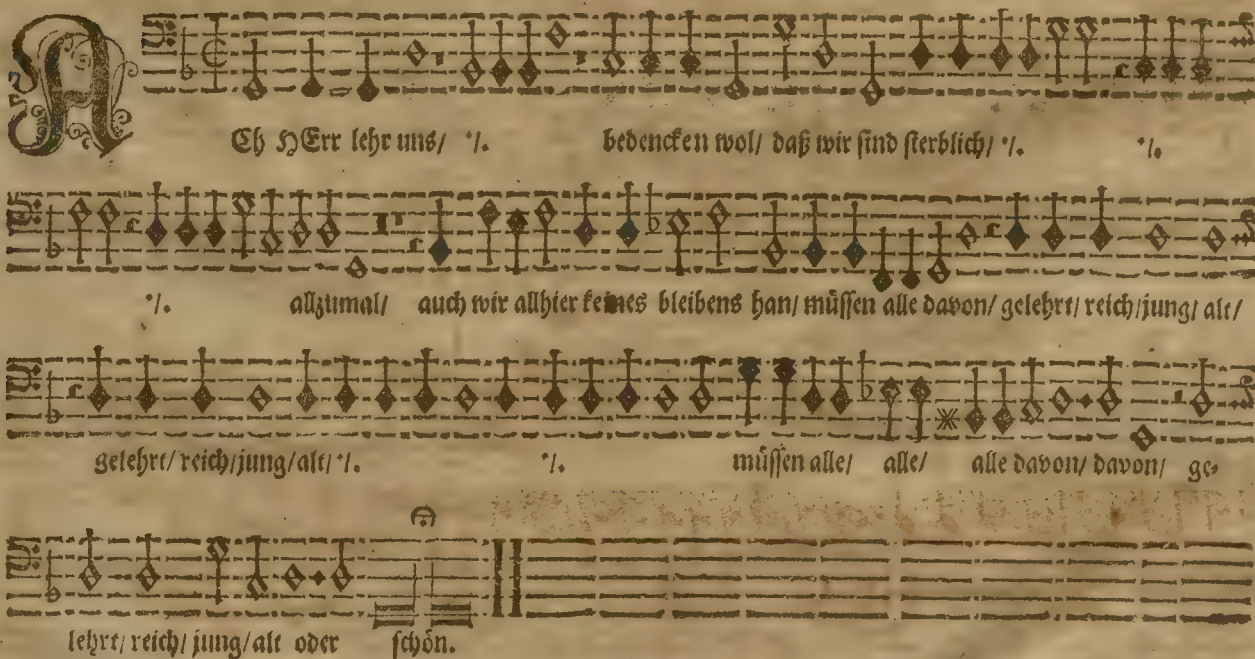 ACh HErr lehr uns/ ·/. bedencken wol/ daß wir sind sterblich/ ·/. ·/.
·/. allzumal/ auch wir allhier keines bleibens han/ müssen alle davon/ gelehrt/ reich/ jung/ alt/
gelehrt/ reich/ jung/ alt/ ·/. ·/. müssen alle/ alle/ alle davon/ davon/ ge-
lehrt/ reich/ jung/ alt oder schön.